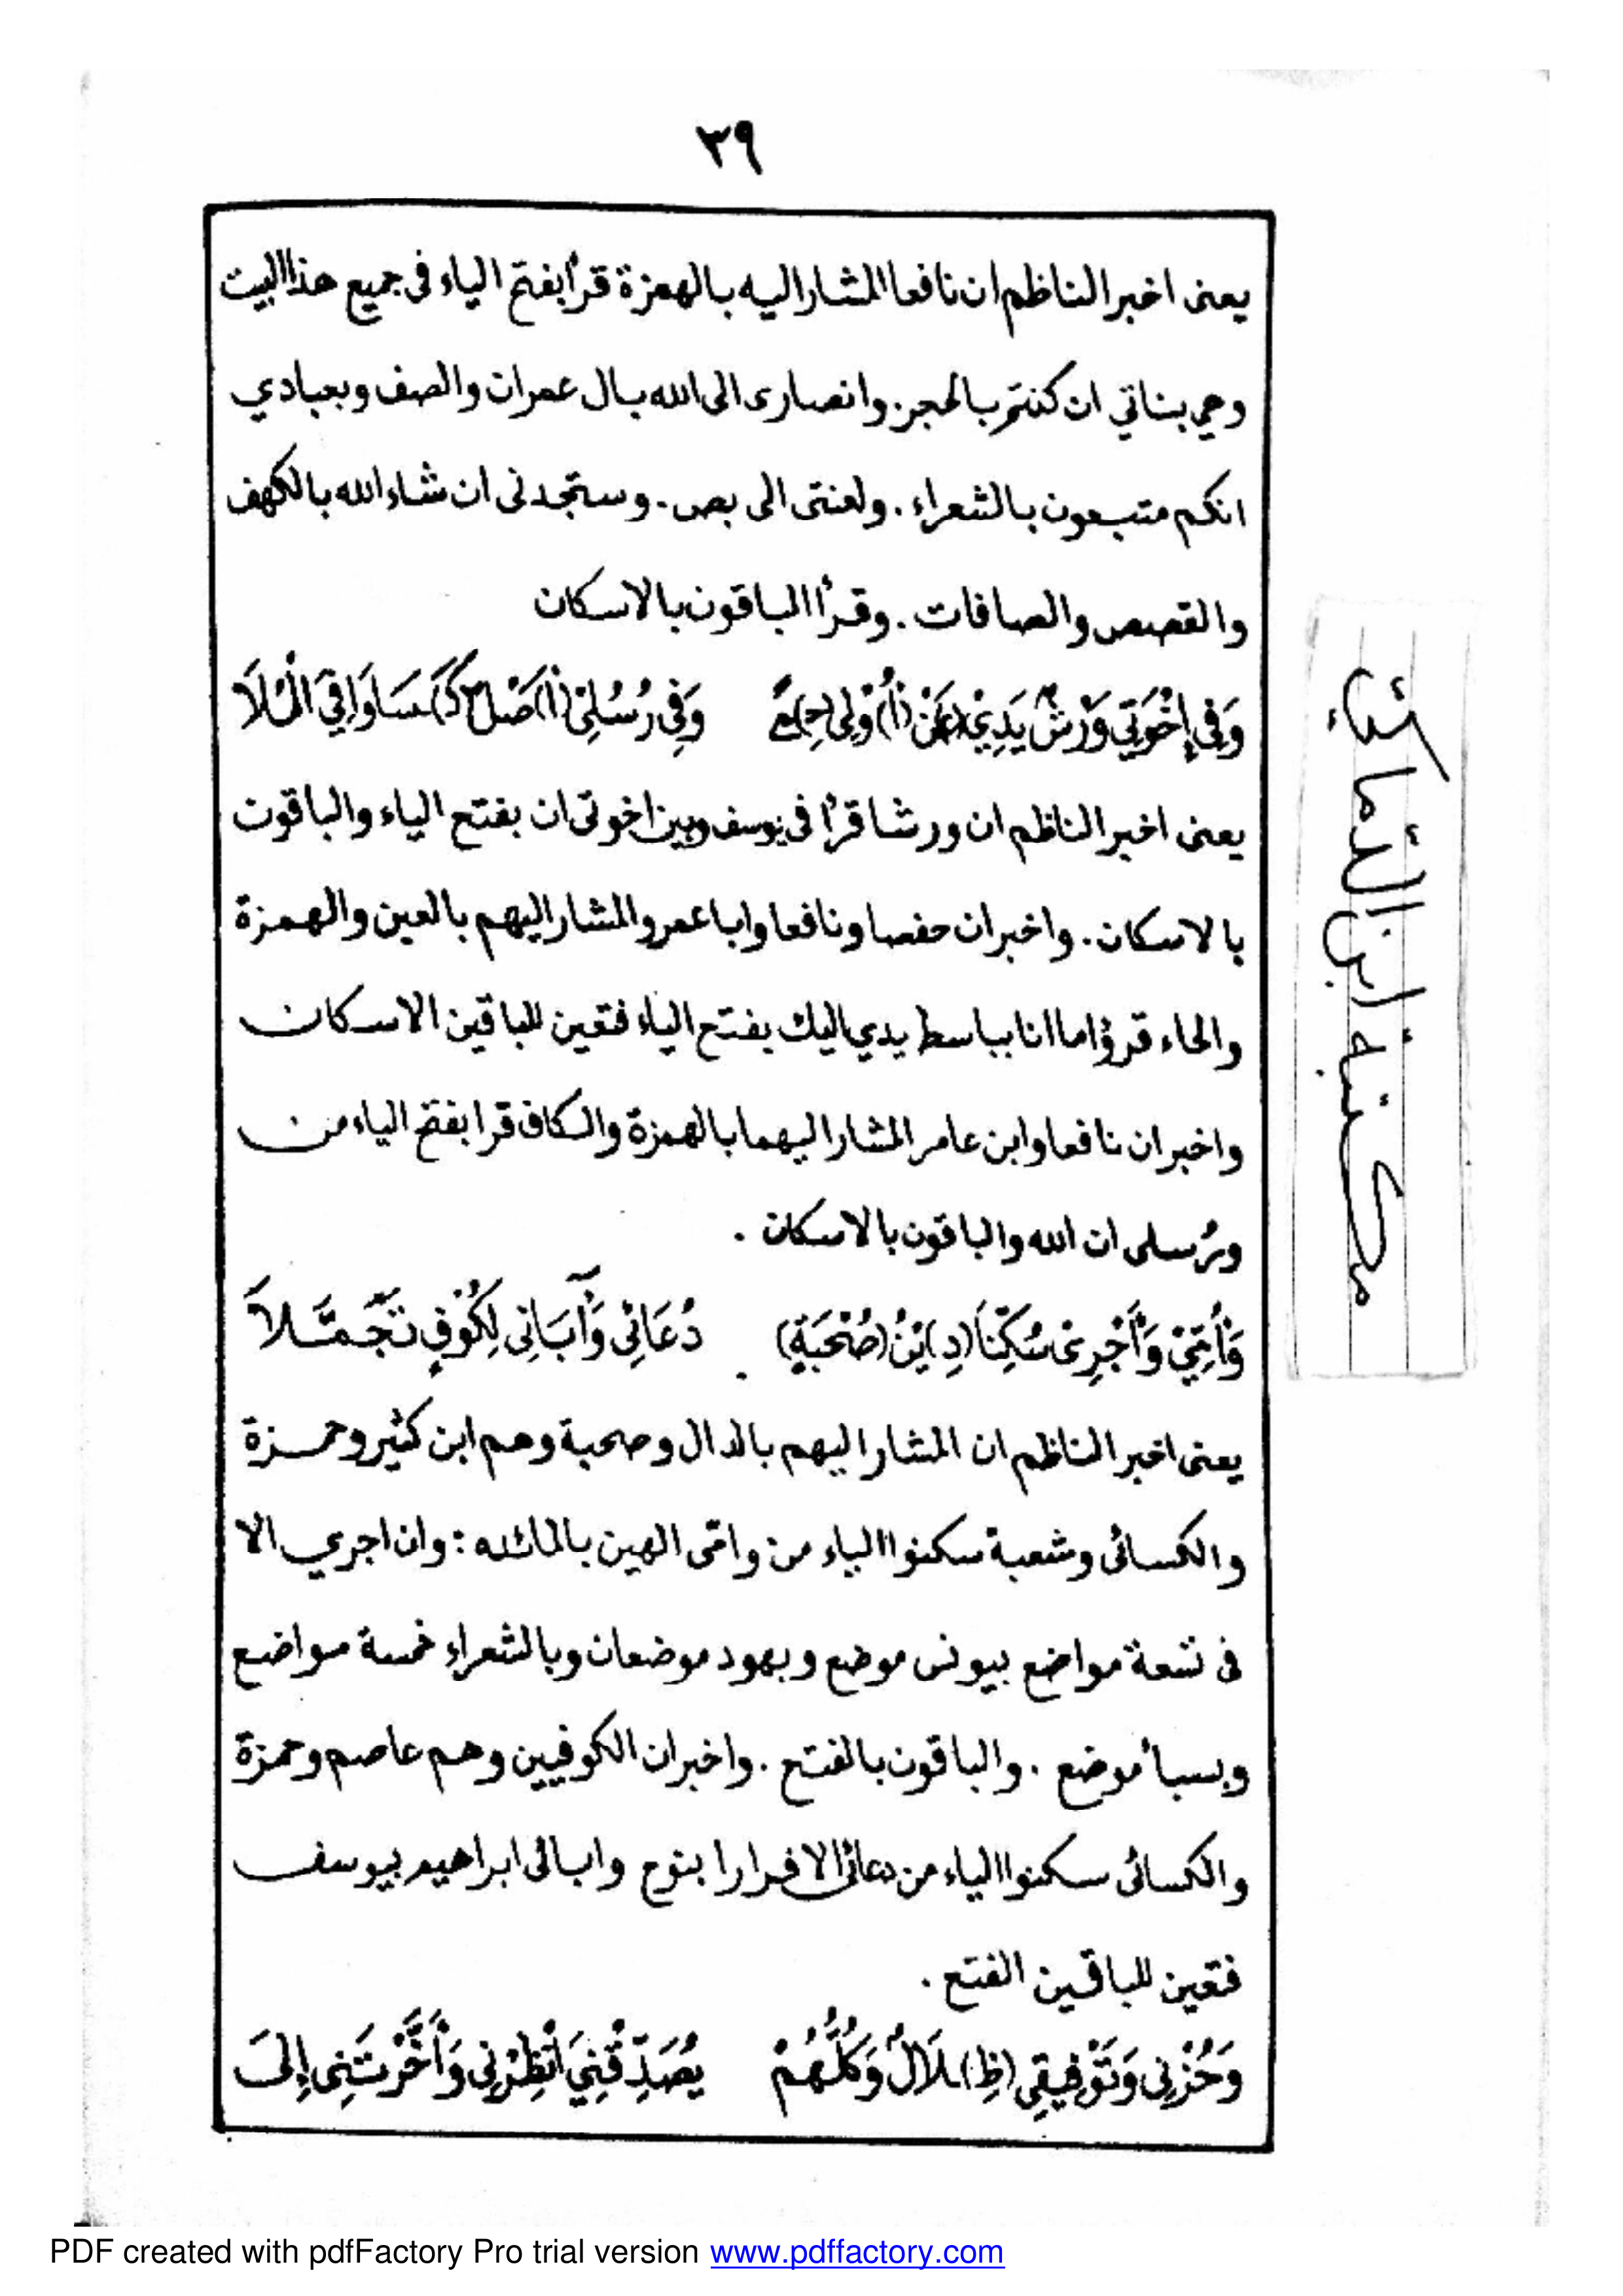 ٣٩
يعنى اخبر الناظم ان نافعا المشار اليه بالهمزة قرأ بفتح الياء فى جميع هذا البيت
وهي بناتي ان كنتم بالحجر. وانصارى الى الله بال عمران والصف وبعبادي
انكم متبعون بالشعراء. ولعنتى الى بص. وستجدنى ان شاء الله بالكهف
والقصص والصافات. وقرأ الباقون بالاسكان
وَفِى إِخْوَتِي وَرْشٌ يَدِيْ (عَ)نْ (أُ)وْلِى (حِ)مًى وَفِى رُسُلِىْ (أَ)صْلٌ (كَ)سَا وَافِيَ الْمُلَا
يعنى اخبر الناظم ان ورشا قرأ فى يوسف وبين اخوتى ان بفتح الياء والباقون
بالاسكان. واخبر ان حفصا ونافعا وابا عمرو المشار اليهم بالعين والهمزة
والحاء قرؤا ما انا بباسط يدي اليك بفتح الياء فتعين للباقين الاسكان
واخبر ان نافعا وابن عامر المشار اليهما بالهمزة والكاف قرا بفتح الياء من
ورُسلى ان الله والباقون بالاسكان .
وَأُمِّيْ وَأَجْرِىْ سُكِّنَا (دِ)يْنُ (صُحْبَةٍ) دُعَائِىْ وَآبَائِى لِكُوْفٍ تَجَمَّلَا
يعنى اخبر الناظم ان المشار اليهم بالدال وصحبة وهم ابن كثير وحمزة
والكسائى وشعبة سكنوا الياء من وامّى الهين بالمائده : وان اجري الا
فى تسعة مواضع بيونس موضع وبهود موضعان وبالشعراء خمسة مواضع
وبسبأ موضع . والباقون بالفتح . واخبر ان الكوفيين وهم عاصم وحمزة
والكسائى سكنوا الياء من دعائى الا فرارا بنوح وابائى ابراهيم بيوسف
فتعين للباقين الفتح .
وَحُزْنِى وَتَوْفِيقِى (ظِ)لَالٌ وَكُلُّهُمْ يُصَدِّقْنِيَ انْظِرْنِى وَأَخَّرْتَنِى إِلَىَ
مكتبة ابن القماطي
PDF created with pdfFactory Pro trial version www.pdffactory.com